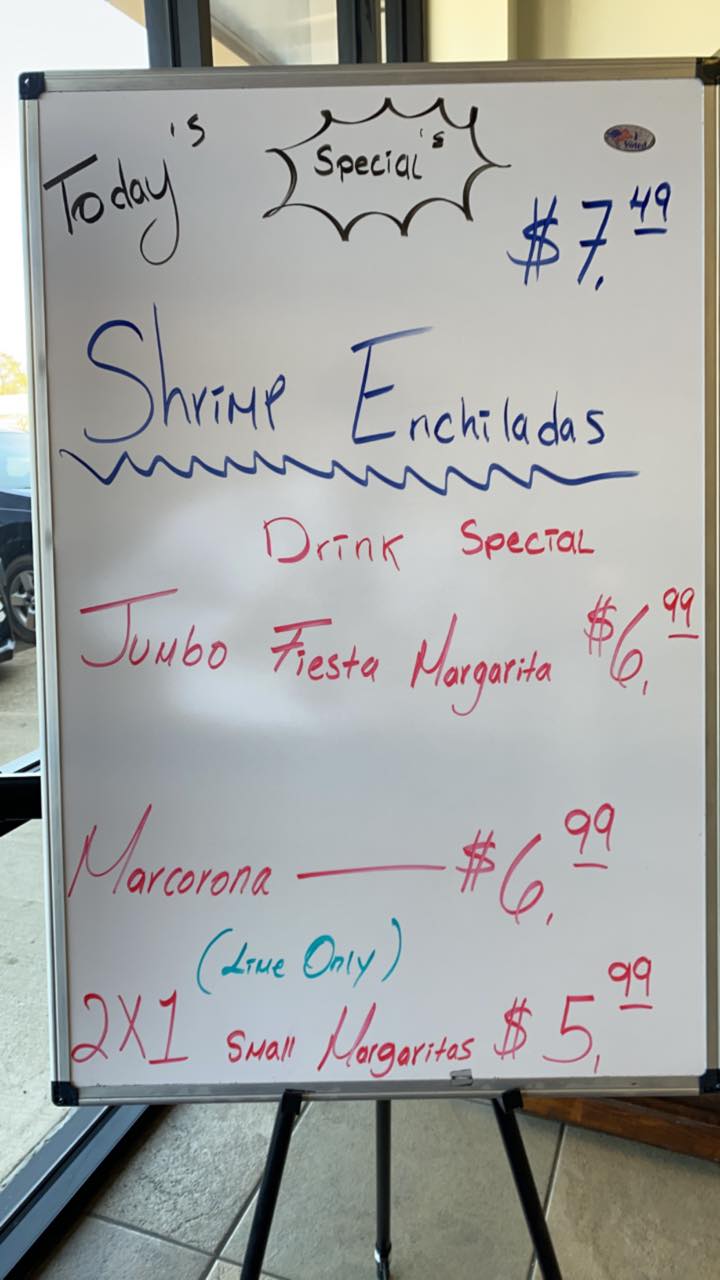 Today's Special's
I Voted
$7.49
Shrimp Enchiladas
Drink Special
Jumbo Fiesta Margarita $6.99
Marcorona — $6.99
(Lime Only)
2X1 Small Margaritas $5.99